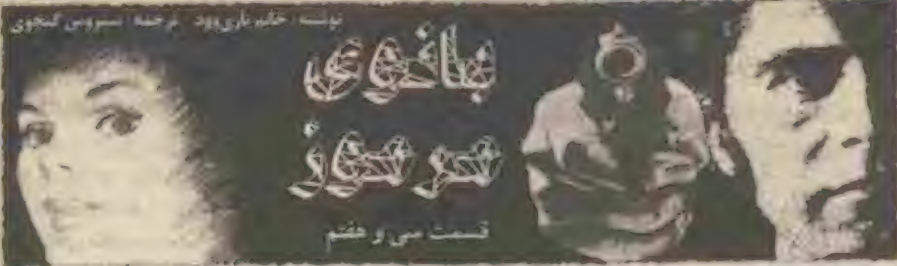 نوشته: خانم باری‌وود ترجمه: سیروس گنجوی
بانوی
مرموز
قسمت سی و هفتم